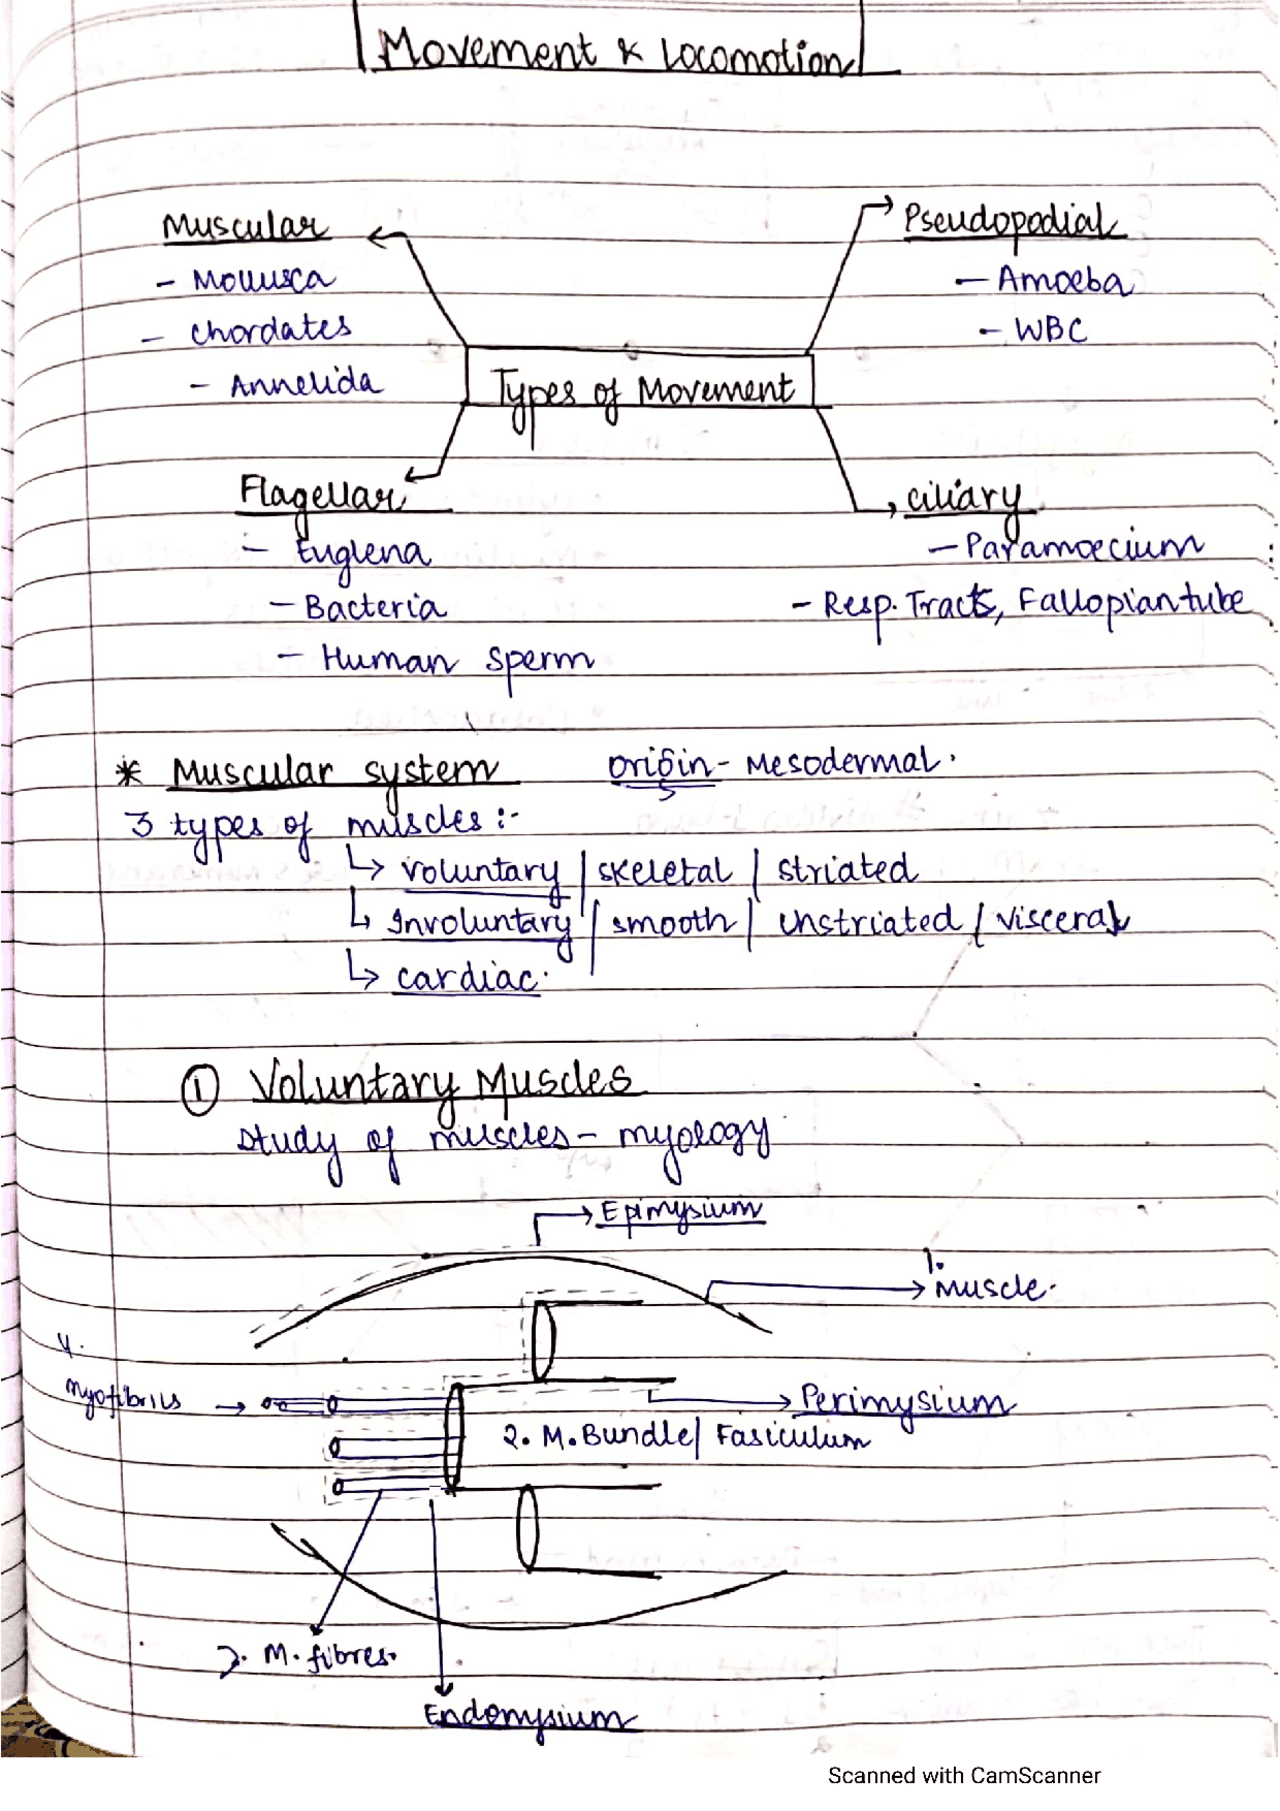 Movement & Locomotion
Muscular
- Mollusca
- chordates
- Annelida
Pseudopodial
- Amoeba
- WBC
Types of Movement
Flagellar
- Euglena
- Bacteria
- Human sperm
ciliary
- Paramoecium
- Resp. Tracts, Fallopian tube
* Muscular system origin - Mesodermal.
3 types of muscles :-
↳ voluntary / skeletal / striated
↳ Involuntary / smooth / unstriated / visceral
↳ cardiac.
① Voluntary Muscles
study of muscles - myology
→ Epimysium
1.
→ Muscle.
4.
myofibrils →
→ Perimysium
2. M. Bundle / Fasiculum
3. M. fibres.
Endomysium
Scanned with CamScanner